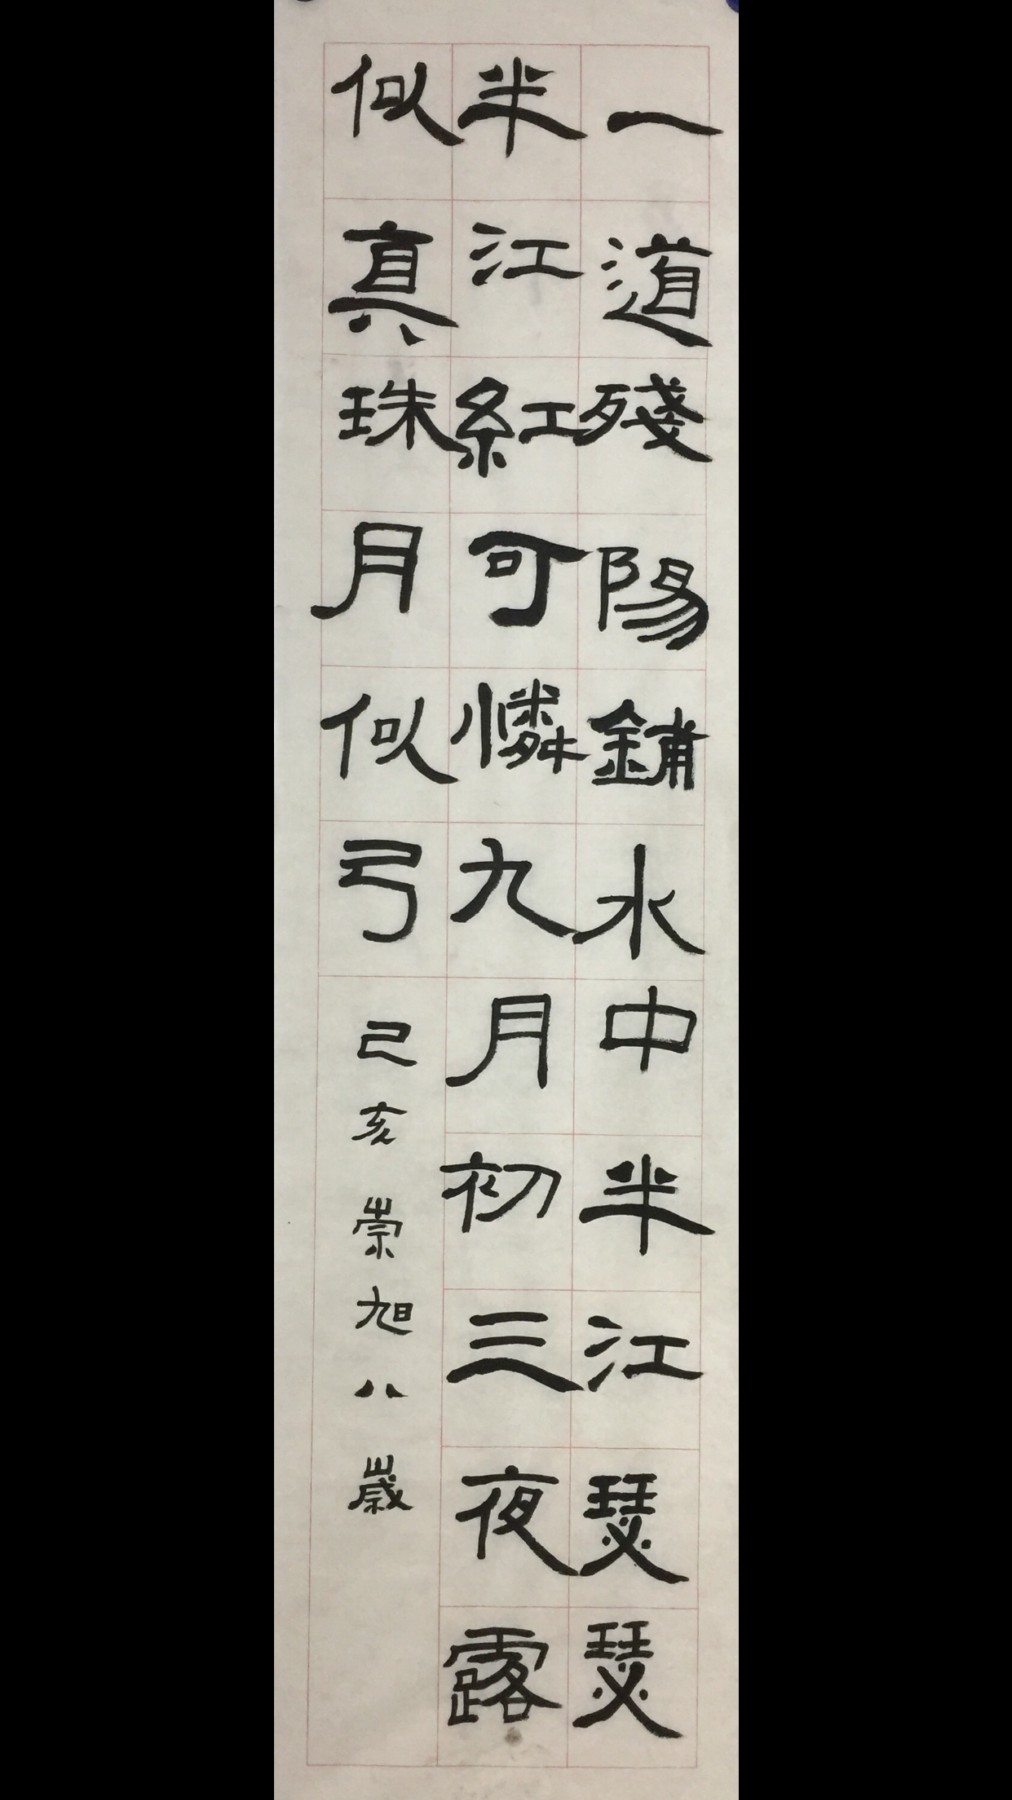 一道殘陽鋪水中半江瑟瑟
半江紅可憐九月初三夜露
似真珠月似弓
己亥崇旭八歲